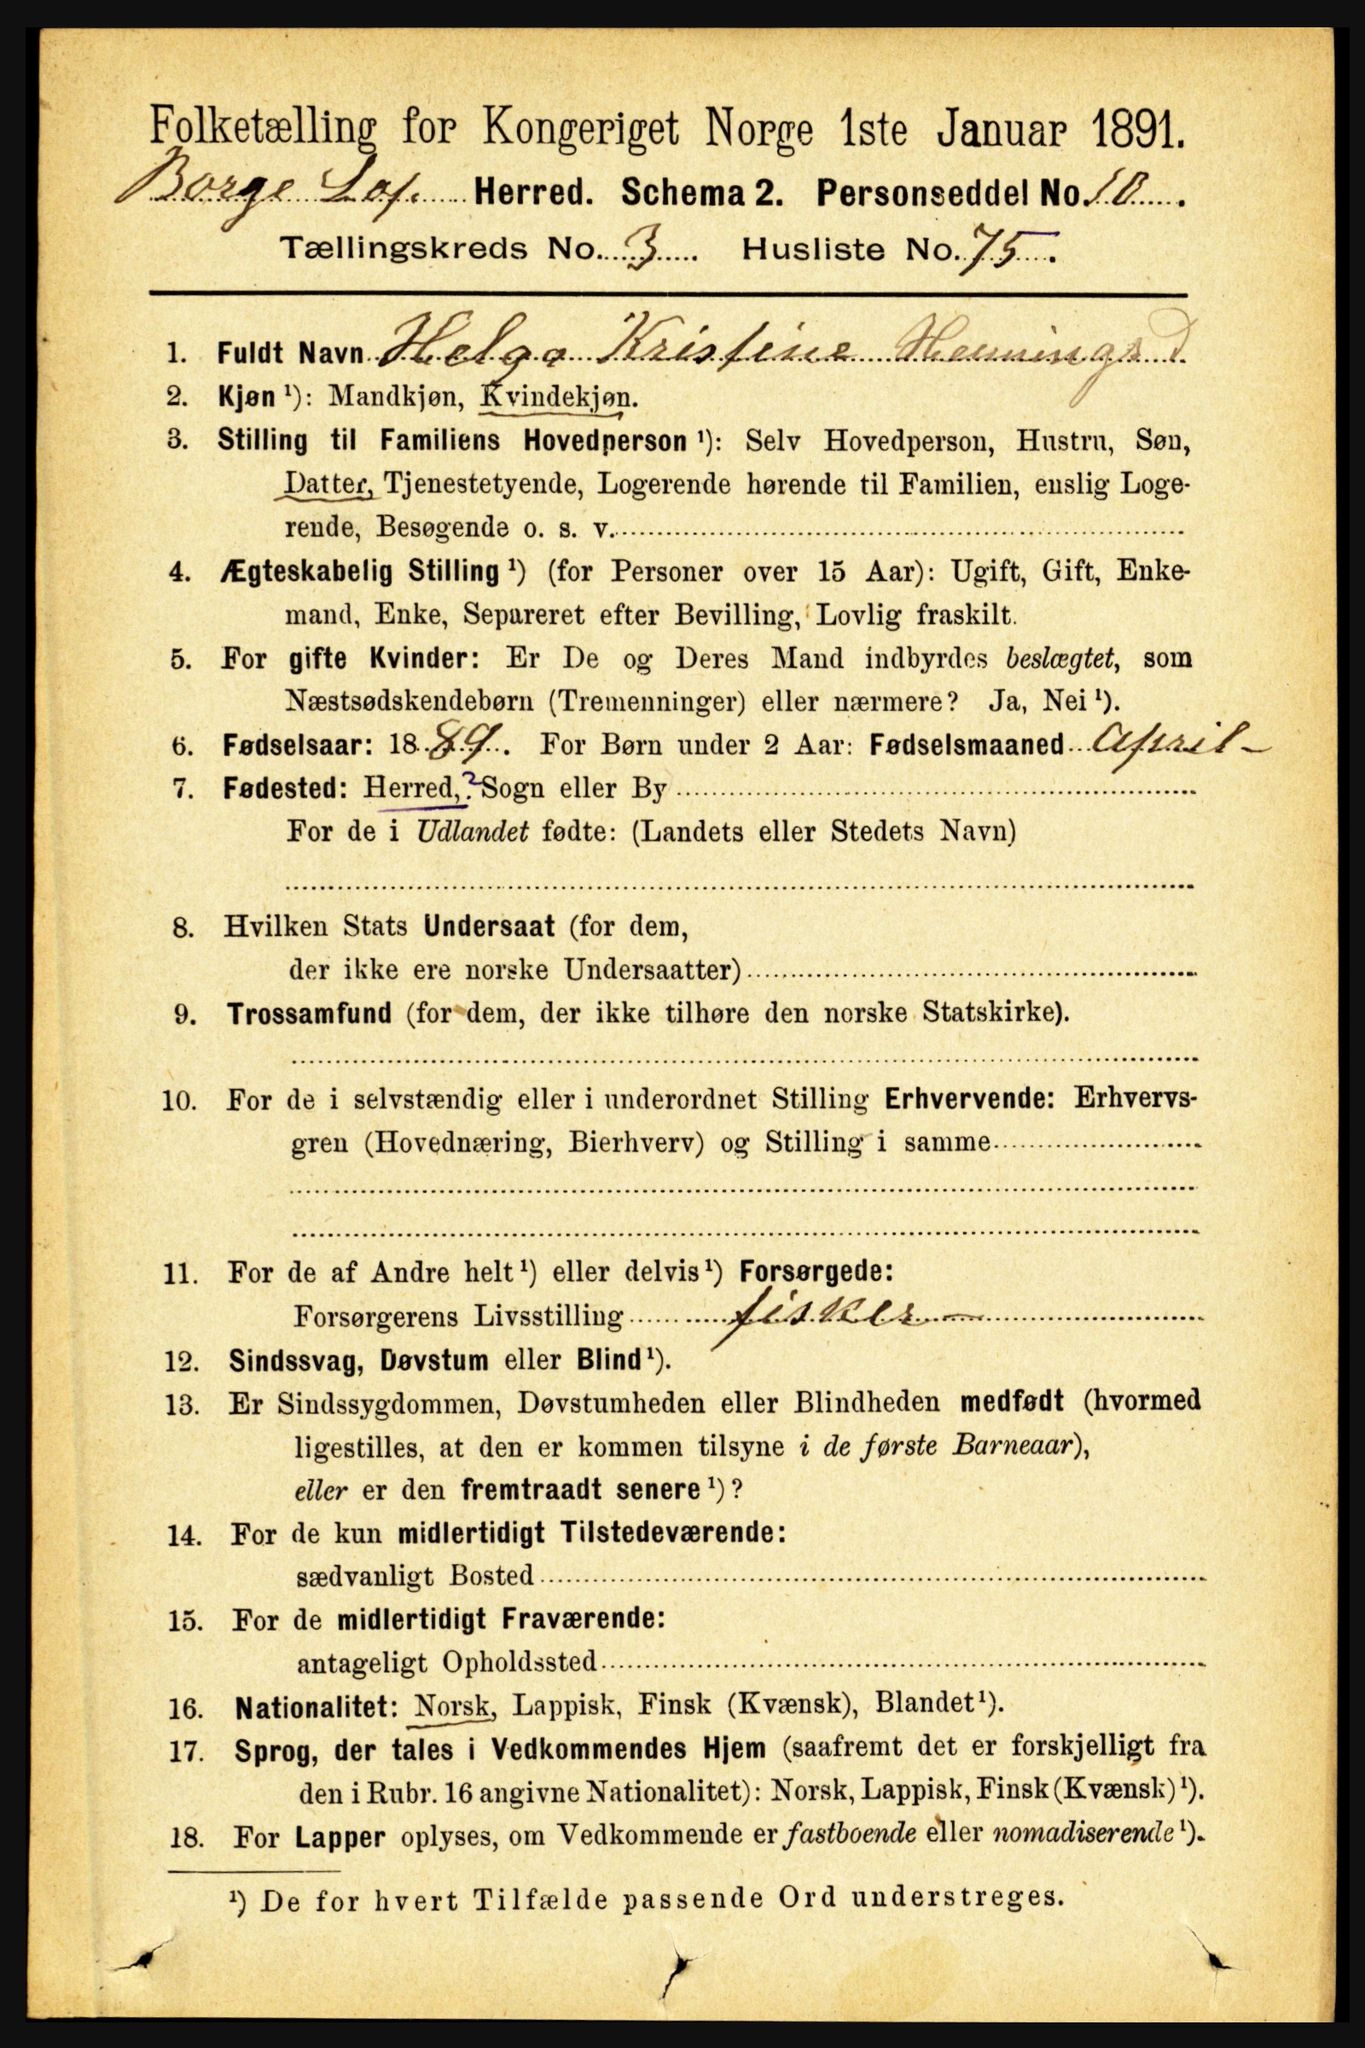 Folketælling for Kongeriget Norge 1ste Januar 1891.
Borge Lof. Herred. Schema 2. Personseddel No. 10.
Tællingskreds No. 3. Husliste No. 75.
1. Fuldt Navn Helga Kristine Hennings D
2. Kjøn ¹): Mandkjøn, Kvindekjøn.
3. Stilling til Familiens Hovedperson ¹): Selv Hovedperson, Hustru, Søn,
Datter, Tjenestetyende, Logerende hørende til Familien, enslig Loge-
rende, Besøgende o. s. v.
4. Ægteskabelig Stilling ¹) (for Personer over 15 Aar): Ugift, Gift, Enke-
mand, Enke, Separeret efter Bevilling, Lovlig fraskilt.
5. For gifte Kvinder: Er De og Deres Mand indbyrdes beslægtet, som
Næstsødskendebørn (Tremenninger) eller nærmere? Ja, Nei ¹).
6. Fødselsaar: 1889. For Børn under 2 Aar: Fødselsmaaned April -
7. Fødested: Herred,? Sogn eller By
For de i Udlandet fødte: (Landets eller Stedets Navn)
8. Hvilken Stats Undersaat (for dem,
der ikke ere norske Undersaatter)
9. Trossamfund (for dem, der ikke tilhøre den norske Statskirke).
10. For de i selvstændig eller i underordnet Stilling Erhvervende: Erhvervs-
gren (Hovednæring, Bierhverv) og Stilling i samme
11. For de af Andre helt ¹) eller delvis ¹) Forsørgede:
Forsørgerens Livsstilling fisker -
12. Sindssvag, Døvstum eller Blind ¹).
13. Er Sindssygdommen, Døvstumheden eller Blindheden medfødt (hvormed
ligestilles, at den er kommen tilsyne i de første Barneaar),
eller er den fremtraadt senere ¹)?
14. For de kun midlertidigt Tilstedeværende:
sædvanligt Bosted
15. For de midlertidigt Fraværende:
antageligt Opholdssted
16. Nationalitet: Norsk, Lappisk, Finsk (Kvænsk), Blandet ¹).
17. Sprog, der tales i Vedkommendes Hjem (saafremt det er forskjelligt fra
den i Rubr. 16 angivne Nationalitet): Norsk, Lappisk, Finsk (Kvænsk) ¹).
18. For Lapper oplyses, om Vedkommende er fastboende eller nomadiserende ¹).
¹) De for hvert Tilfælde passende Ord understreges.